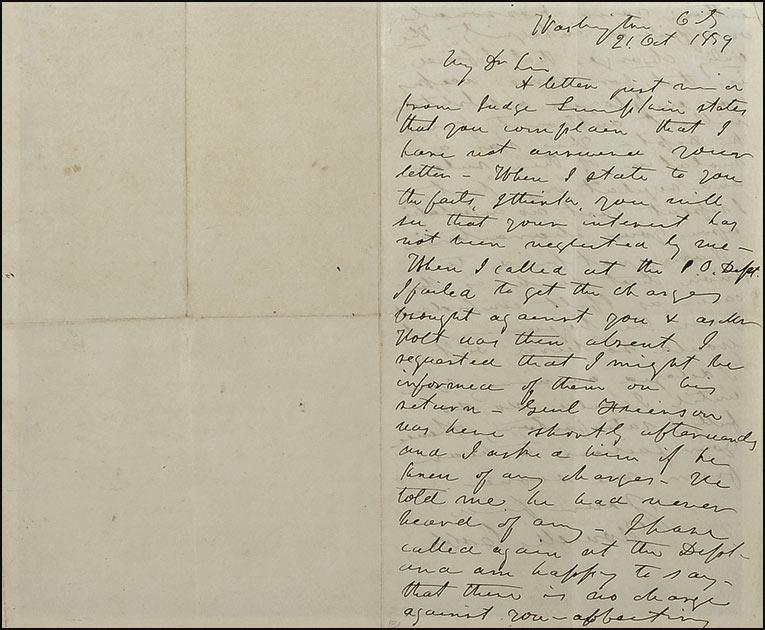 Washington City
21 Oct 1859
My Dr Sir
A letter just rec'd
from Judge Lumpkin states
that you complain that I
have not answered your
letter - When I state to you
the facts, I think, you will
see that your interest has
not been neglected by me -
When I called at the P.O. Dept.
I failed to get the charges
brought against you & as Mr
Holt was then absent. I
requested that I might be
informed of them on his
return - Genl
was here shortly afterwards
and I asked him if he
knew of any charges - He
told me he had never
heard of any - I have
called again at the Dept -
and am happy to say -
that there is no charge
against you - affecting